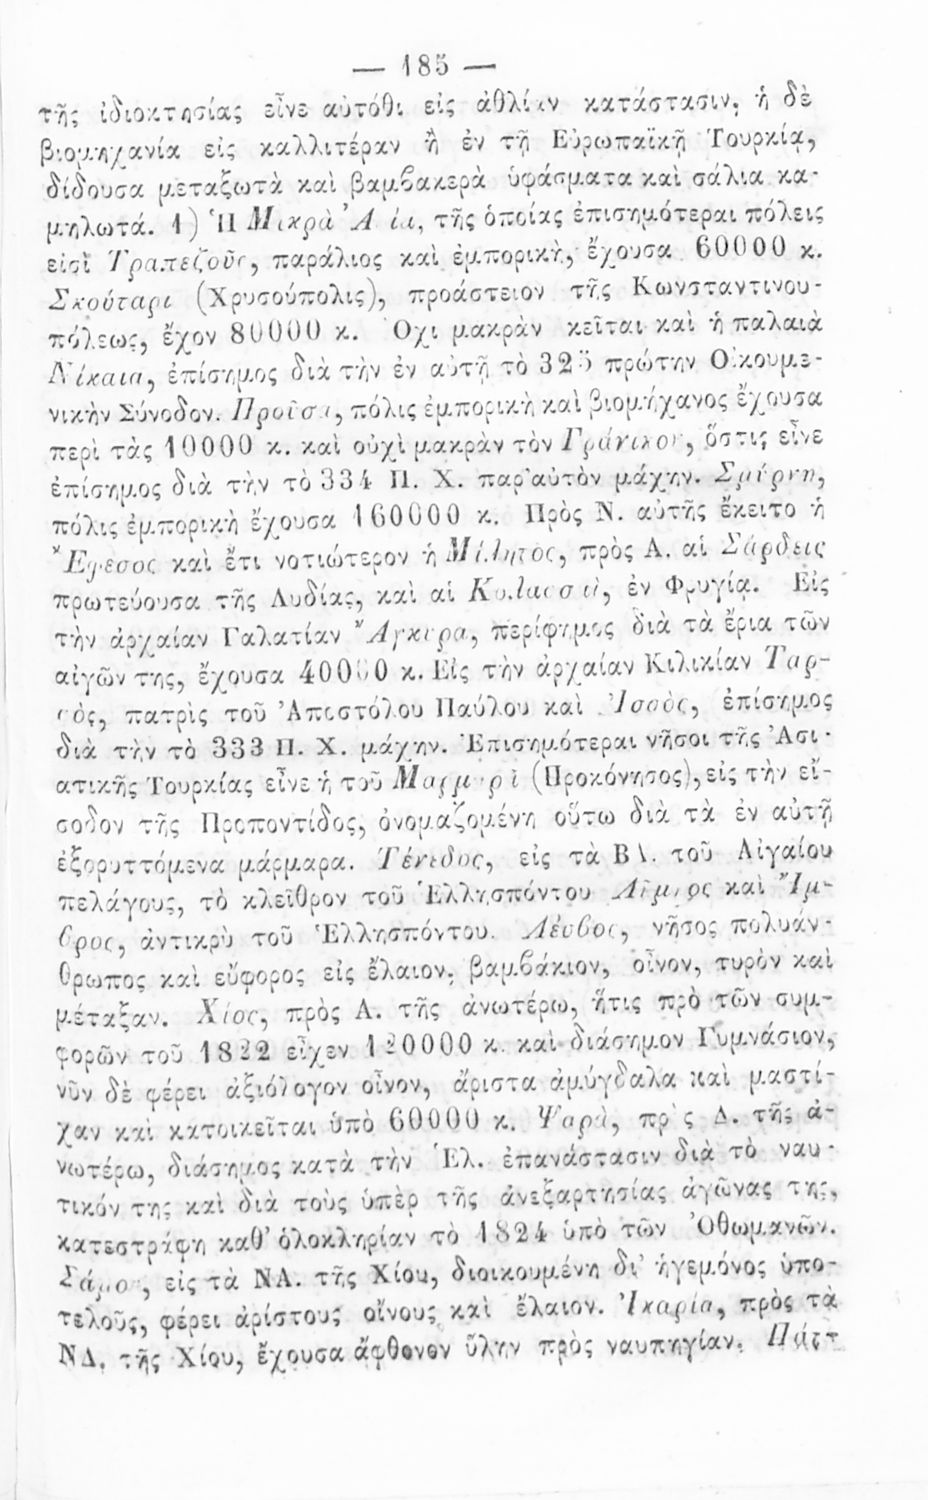 — 185 —
τῆς ἰδιοκτησίας εἶνε αὐτόθι εἰς ἀθλίαν κατάστασιν, ἡ δὲ
βιομηχανία εἰς καλλιτέραν ἢ ἐν τῇ Εὐρωπαϊκῇ Τουρκίᾳ,
δίδουσα μεταξωτὰ καὶ βαμβακερὰ ὑφάσματα καὶ σάλια κα-
μηλωτά. 1) Ἡ Μικρὰ Ἀσία, τῆς ὁποίας ἐπισημότεραι πόλεις
εἰσὶ Τραπεζοῦς, παράλιος καὶ ἐμπορικὴ, ἔχουσα 60000 κ.
Σκούταρι (Χρυσούπολις), προάστειον τῆς Κωνσταντινου-
πόλεως, ἔχον 80000 κ. Ὄχι μακρὰν κεῖται καὶ ἡ παλαιὰ
Νίκαια, ἐπίσημος διὰ τὴν ἐν αὐτῇ τὸ 325 πρώτην Οἰκουμε-
νικὴν Σύνοδον. Προῦσα, πόλις ἐμπορικὴ καὶ βιομήχανος ἔχουσα
περὶ τὰς 10000 κ. καὶ οὐχὶ μακρὰν τὸν Γράνικον, ὅστις εἶνε
ἐπίσημος διὰ τὴν τὸ 334 Π. Χ. παρ' αὐτὸν μάχην. Σμύρνη,
πόλις ἐμπορικὴ ἔχουσα 160000 κ. Πρὸς Ν. αὐτῆς ἔκειτο ἡ
Ἔφεσος καὶ ἔτι νοτιώτερον ἡ Μίλητος, πρὸς Α. αἱ Σάρδεις
πρωτεύουσα τῆς Λυδίας, καὶ αἱ Κολασσαὶ, ἐν Φρυγίᾳ. Εἰς
τὴν ἀρχαίαν Γαλατίαν Ἄγκυρα, περίφημος διὰ τὰ ἔρια τῶν
αἰγῶν της, ἔχουσα 40000 κ. Εἰς τὴν ἀρχαίαν Κιλικίαν Ταρ-
σὸς, πατρὶς τοῦ Ἀποστόλου Παύλου καὶ Ἰσσὸς, ἐπίσημος
διὰ τὴν τὸ 333 Π. Χ. μάχην. Ἐπισημότεραι νῆσοι τῆς Ἀσι-
ατικῆς Τουρκίας εἶνε ἡ τοῦ Μαρμαρὶ (Προκόνησος), εἰς τὴν εἴ-
σοδον τῆς Προποντίδος, ὀνομαζομένη οὕτω διὰ τὰ ἐν αὐτῇ
ἐξορυττόμενα μάρμαρα. Τένεδος, εἰς τὰ ΒΑ. τοῦ Αἰγαίου
πελάγους, τὸ κλεῖθρον τοῦ Ἑλλησπόντου Λῆμνος καὶ Ἴμ-
βρος, ἀντικρὺ τοῦ Ἑλλησπόντου. Λέσβος, νῆσος πολυάν-
θρωπος καὶ εὔφορος εἰς ἔλαιον, βαμβάκιον, οἶνον, τυρὸν καὶ
μέταξαν. Χίος, πρὸς Α. τῆς ἀνωτέρω, ἥτις πρὸ τῶν συμ-
φορῶν τοῦ 1822 εἶχεν 120000 κ. καὶ διάσημον Γυμνάσιον,
νῦν δὲ φέρει ἀξιόλογον οἶνον, ἄριστα ἀμύγδαλα καὶ μαστί-
χαν καὶ κατοικεῖται ὑπὸ 60000 κ. Ψαρὰ, πρὸς Δ. τῆς ἀ-
νωτέρω, διάσημος κατὰ τὴν Ἑλ. ἐπανάστασιν διὰ τὸ ναυ-
τικόν της καὶ διὰ τοὺς ὑπὲρ τῆς ἀνεξαρτησίας ἀγῶνας της,
κατεστράφη καθ' ὁλοκληρίαν τὸ 1824 ὑπὸ τῶν Ὀθωμανῶν.
Σάμος, εἰς τὰ ΝΑ. τῆς Χίου, διοικουμένη δι' ἡγεμόνος ὑπο-
τελοῦς, φέρει ἀρίστους οἴνους καὶ ἔλαιον. Ἰκαρία, πρὸς τὰ
ΝΔ. τῆς Χίου, ἔχουσα ἄφθονον ὕλην πρὸς ναυπηγίαν.